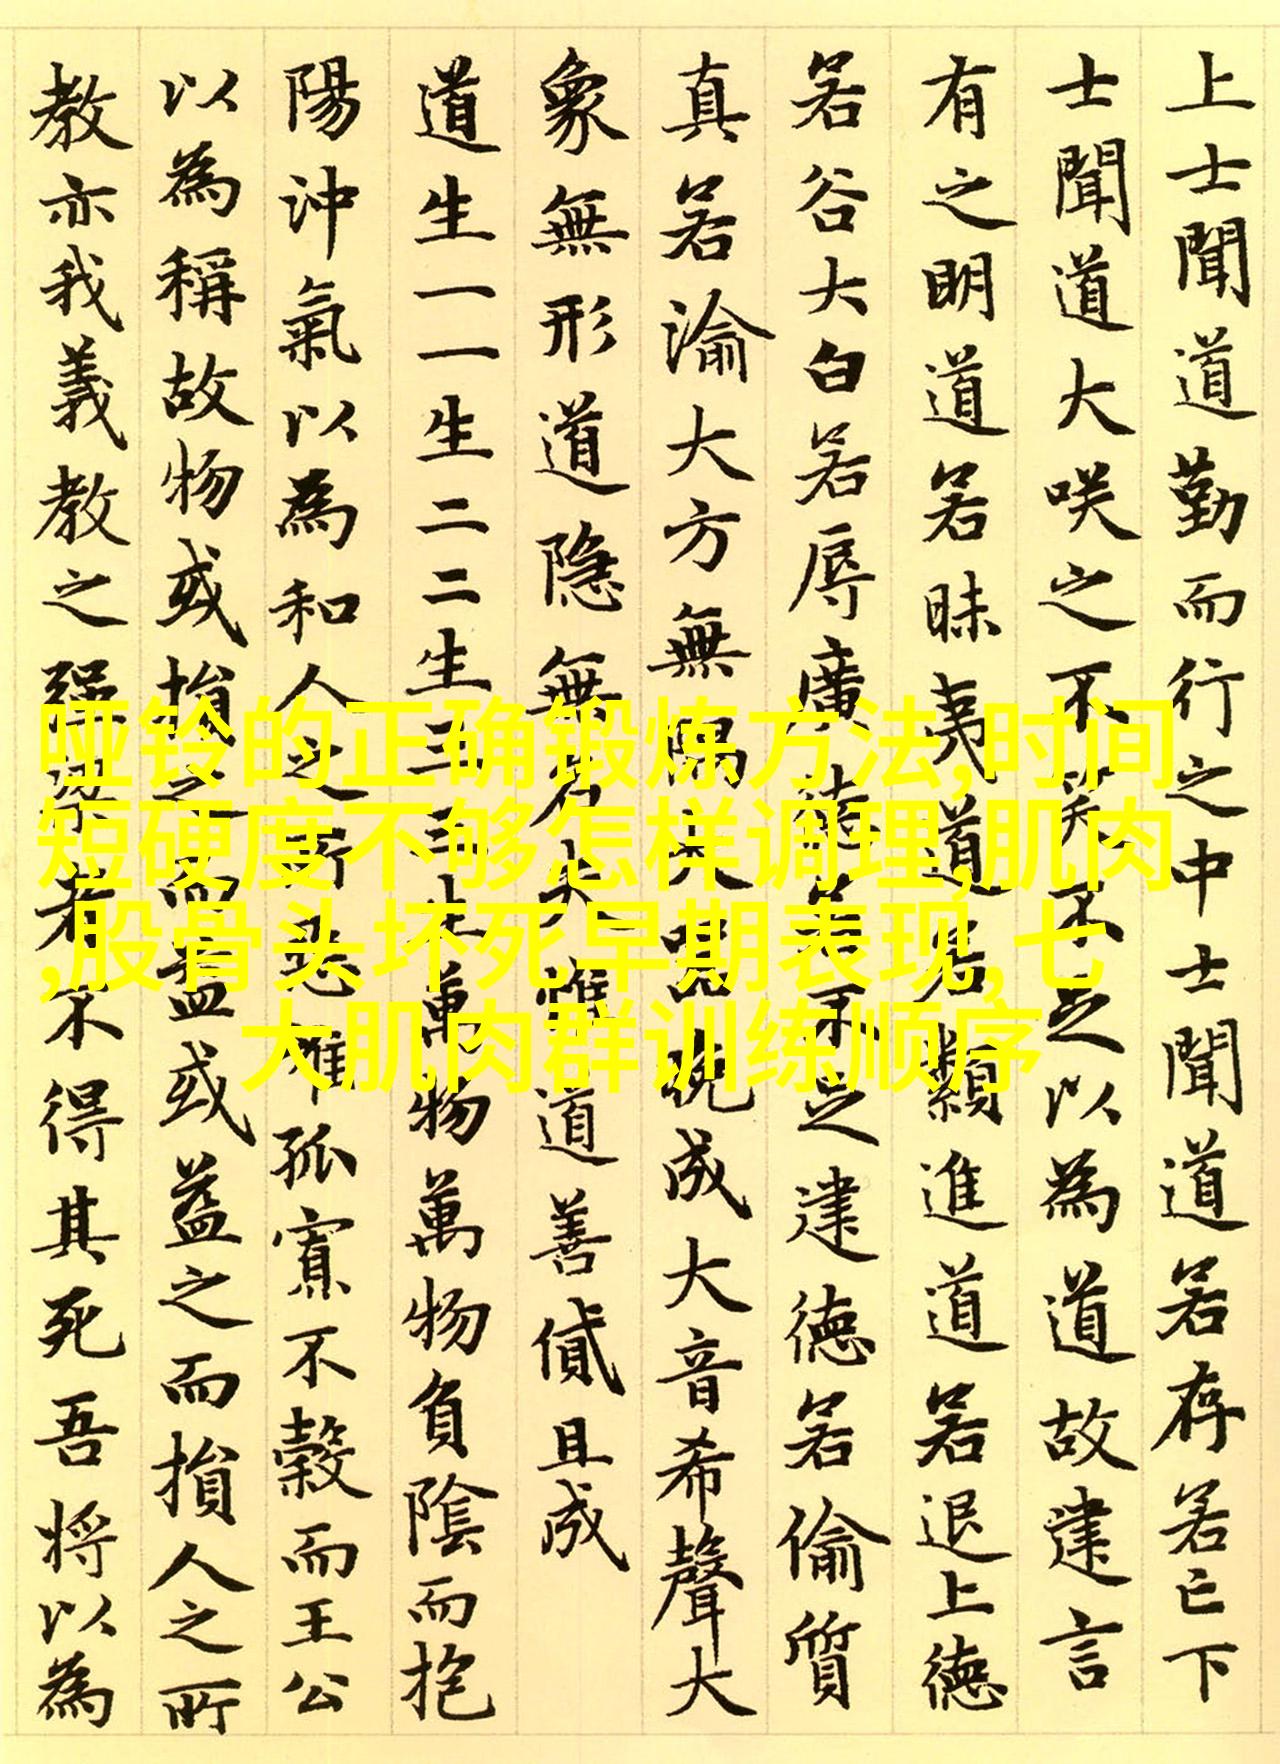 上士聞道勤而行之中士聞道若存若亡下
士聞道大咲之不笑不足以為道故建言
有之明道若昧夷道若類進道若退上德
若谷大白若辱廣德若不足建德若偷質
真若渝大方無隅大器晚成大音希聲大
象無形道隐無名夫惟道善貸且成
道生一一生二二生三三生萬物萬物負陰而抱
陽沖氣以為和人之所惡惟孤寡不穀而王公
以為稱故物或損之而益或益之而損人之所
教亦我義教之强梁者不得其死吾将以為
哑铃的正确锻炼方法,时间
短硬度不够怎样调理,肌肉
,股骨头坏死早期表现,七
大肌肉群训练顺序